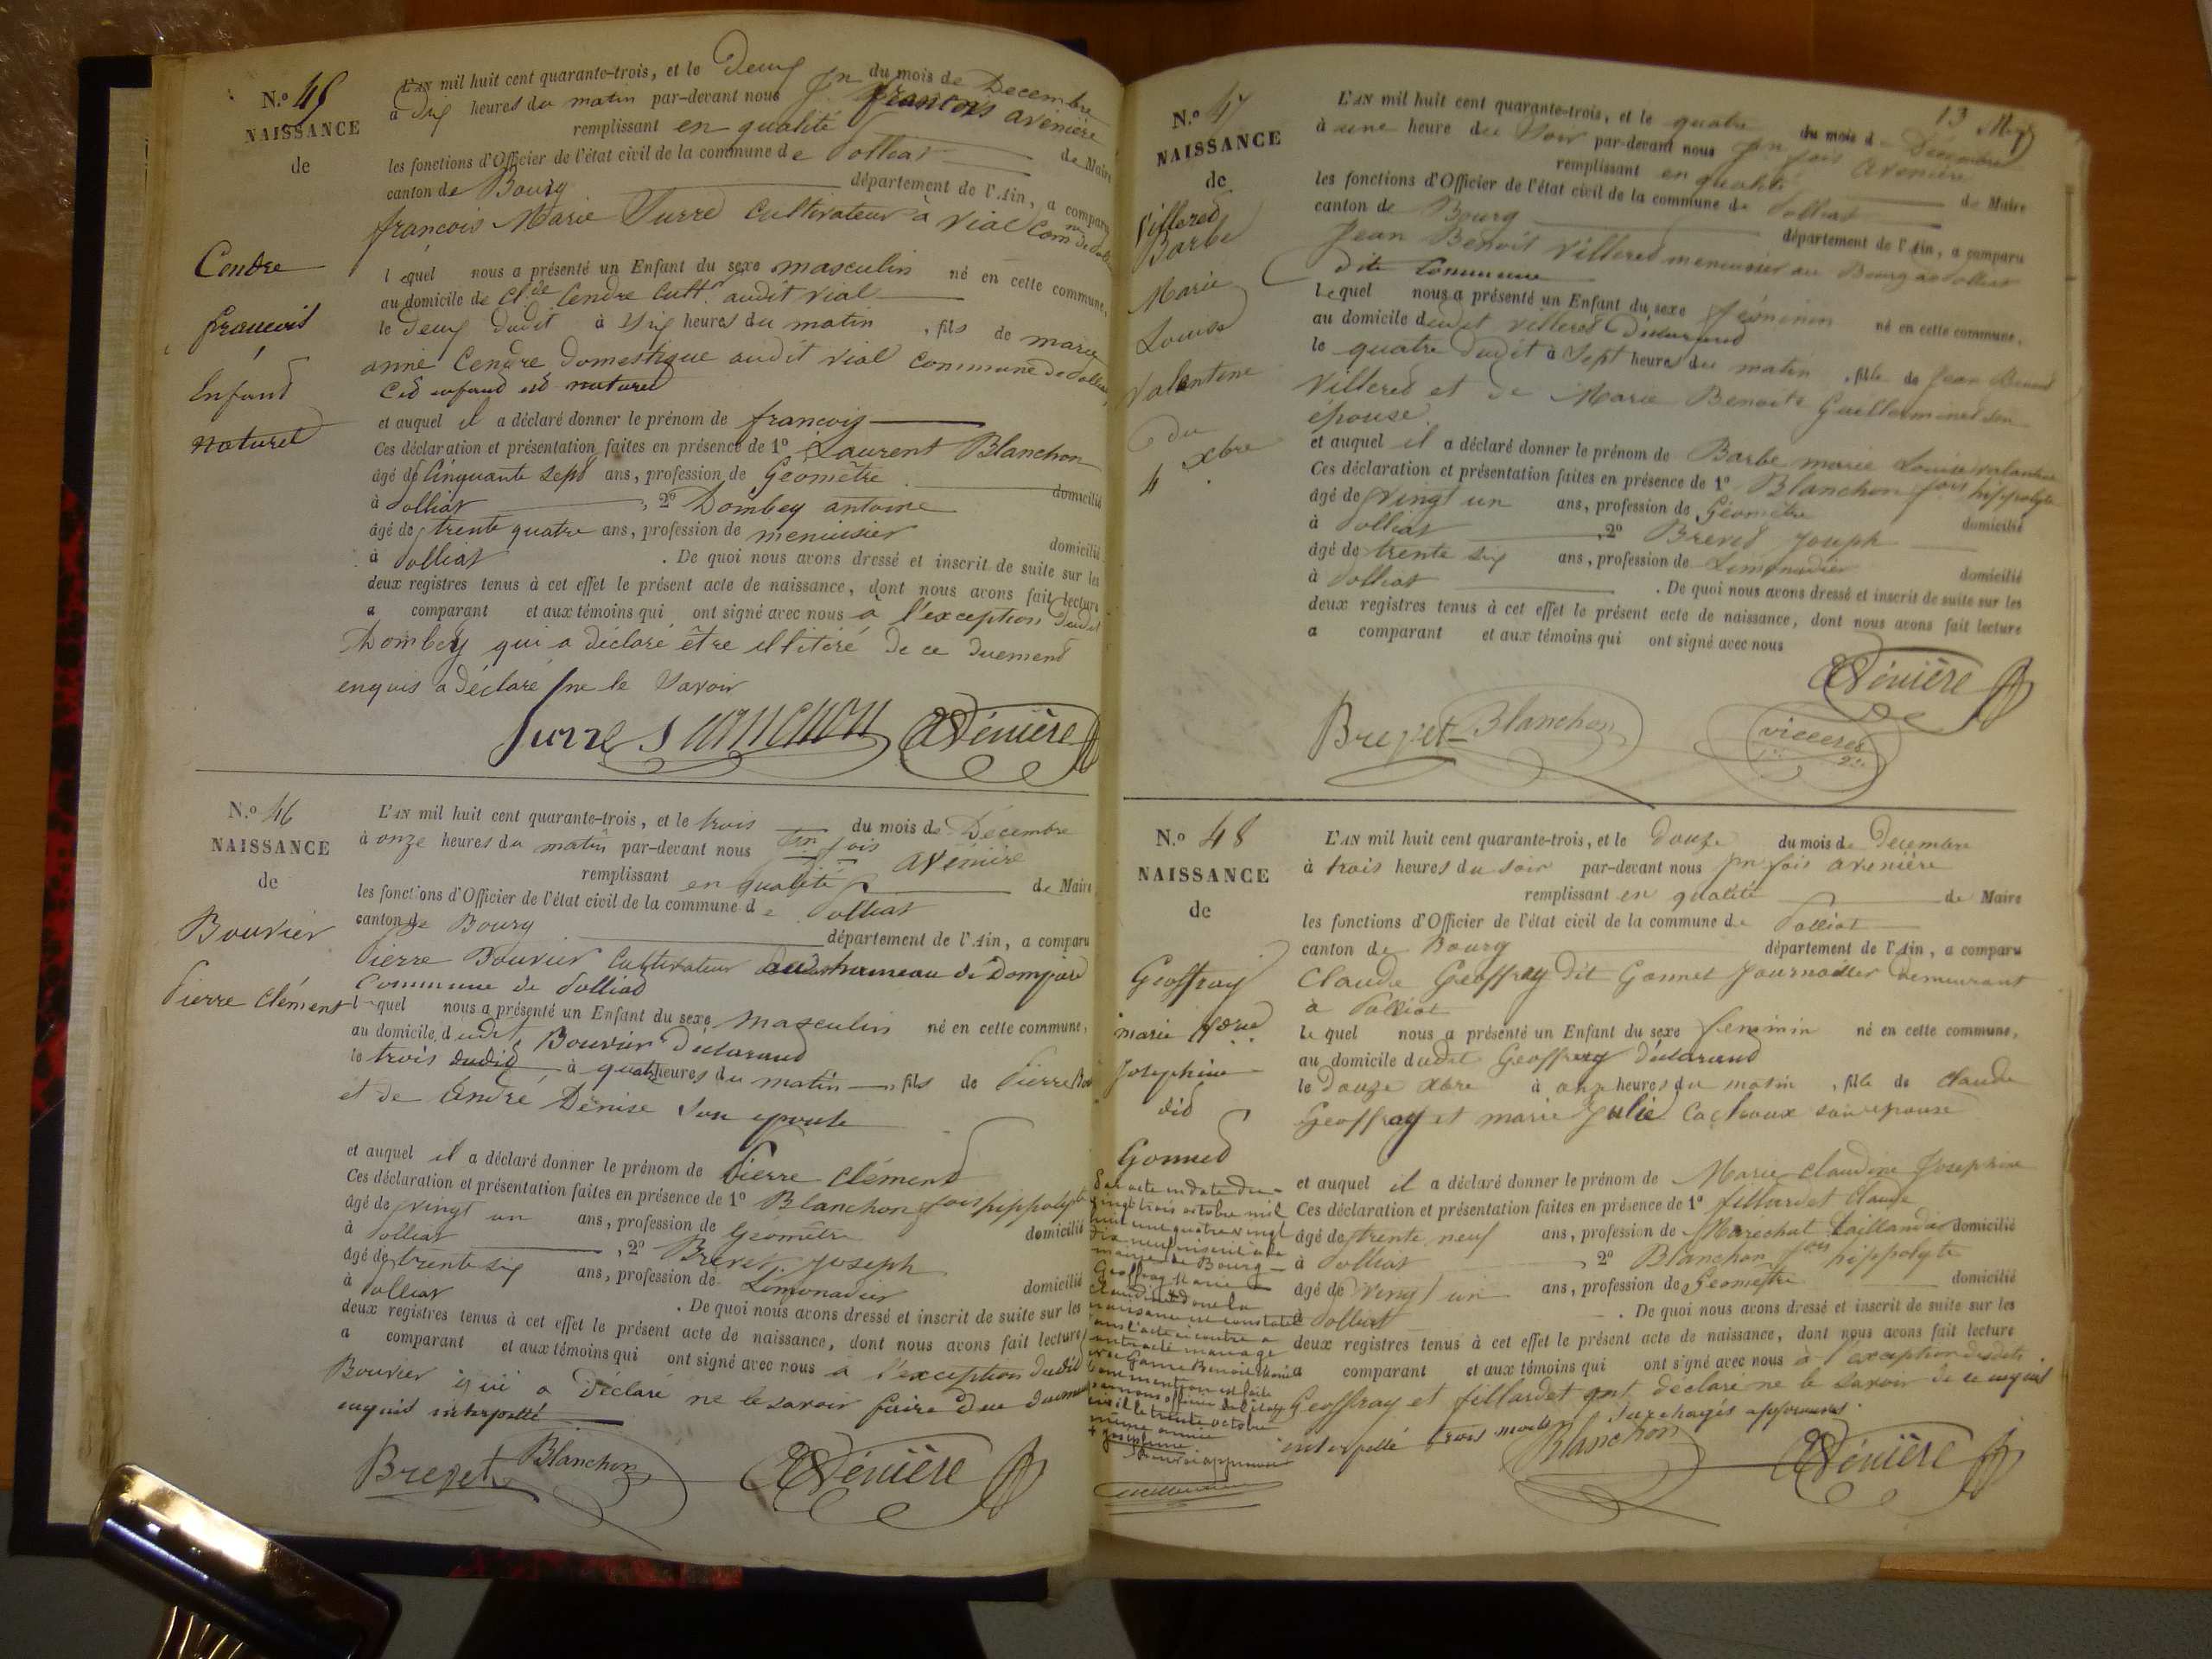 N.º 45
NAISSANCE
de
Cendre
francois
Enfand
naturel
L'AN mil huit cent quarante-trois, et le Deux du mois de Decembre
à dix heures du matin par-devant nous Jn francois avenière
remplissant en qualité de Maire
les fonctions d'Officier de l'état civil de la commune de Polliat
canton de Bourg département de l'Ain, a comparu
francois Marie Surre Cultivateur à Vial Comne de Polliat
lequel nous a présenté un Enfant du sexe masculin né en cette commune,
au domicile de Cl.de Cendre Cultr audit Vial
le Deux dudit à Six heures du matin, fils de marie
anne Cendre Domestique audit Vial Commune de Polliat
Cet enfand est naturel
et auquel il a déclaré donner le prénom de francois
Ces déclaration et présentation faites en présence de 1º Laurent Blanchon
âgé de Cinquante Sept ans, profession de Géomètre domicilié
à Polliat, 2º Dombey antoine
âgé de trente quatre ans, profession de menuisier domicilié
à Polliat. De quoi nous avons dressé et inscrit de suite sur les
deux registres tenus à cet effet le présent acte de naissance, dont nous avons fait lecture
a comparant et aux témoins qui ont signé avec nous à l'exception dudit
Dombey qui a declaré être illitéré de ce duement
enquis a déclaré ne le Savoir
Surre Blanchon Avénière
N.º 46
NAISSANCE
de
Bouvier
Pierre Clément
L'AN mil huit cent quarante-trois, et le trois du mois de Décembre
à onze heures du matin par-devant nous Jn fois avénière
remplissant en qualité de Maire
les fonctions d'Officier de l'état civil de la commune de Polliat
canton de Bourg département de l'Ain, a comparu
Pierre Bouvier Cultivateur au hameau de Dompierre
Commune de Polliat
lequel nous a présenté un Enfant du sexe masculin né en cette commune,
au domicile dudit Bouvier Déclarand
le trois dudit à quatre heures du matin, fils de Pierre
et de Cendre Denise Son épouse
et auquel il a déclaré donner le prénom de Pierre Clément
Ces déclaration et présentation faites en présence de 1º Blanchon fois hippolyte
âgé de vingt un ans, profession de Géomètre domicilié
à Polliat, 2º Brevet Joseph
âgé de trente six ans, profession de Limonadier domicilié
à Polliat. De quoi nous avons dressé et inscrit de suite sur les
deux registres tenus à cet effet le présent acte de naissance, dont nous avons fait lecture
a comparant et aux témoins qui ont signé avec nous à l'exception dudit
Bouvier qui a déclaré ne le savoir faire
enquis interpellé
Brevet Blanchon Avénière
13
N.º 47
NAISSANCE
de
Villered
Barbe
Marie
Louise
Valentine
du
4 xbre
L'AN mil huit cent quarante-trois, et le quatre du mois de Décembre
à une heure du Soir par-devant nous Jn fois avenière
remplissant en qualité de Maire
les fonctions d'Officier de l'état civil de la commune de Polliat
canton de Bourg département de l'Ain, a comparu
Jean Benoit Villered menuisier au Bourg de Polliat
dite Commune
lequel nous a présenté un Enfant du sexe féminin né en cette commune,
au domicile dudit Villered Déclarand
le quatre dudit à Sept heures du matin, fille de Jean Benoit
Villered et de Marie Benoite Guillerminet son
épouse
et auquel il a déclaré donner le prénom de Barbe marie Louise valantine
Ces déclaration et présentation faites en présence de 1º Blanchon fois hippolyte
âgé de vingt un ans, profession de Géomètre domicilié
à Polliat, 2º Breved Joseph
âgé de trente six ans, profession de Limonadier domicilié
à Polliat. De quoi nous avons dressé et inscrit de suite sur les
deux registres tenus à cet effet le présent acte de naissance, dont nous avons fait lecture
a comparant et aux témoins qui ont signé avec nous
Avénière
Brevet Blanchon Villeret
N.º 48
NAISSANCE
de
Geoffray
marie
Josephine
did
Gonned
L'AN mil huit cent quarante-trois, et le Douze du mois de Decembre
à trois heures du soir par-devant nous Jn fois avenière
remplissant en qualité de Maire
les fonctions d'Officier de l'état civil de la commune de Polliat
canton de Bourg département de l'Ain, a comparu
Claude Geoffray dit Gonnet Journallier demeurant
à Polliat
lequel nous a présenté un Enfant du sexe feminin né en cette commune,
au domicile dudit Geoffray déclarand
le Douze xbre à onze heures du matin, fille de Claude
Geoffray et marie Julie Cachoux son epouse
et auquel il a déclaré donner le prénom de Marie Claudine Josephine
Ces déclaration et présentation faites en présence de 1º fillardet Claude
âgé de trente neuf ans, profession de Marechal Taillandier domicilié
à Polliat, 2º Blanchon fois hippolyte
âgé de vingt un ans, profession de Géomètre domicilié
à Polliat. De quoi nous avons dressé et inscrit de suite sur les
deux registres tenus à cet effet le présent acte de naissance, dont nous avons fait lecture
a comparant et aux témoins qui ont signé avec nous à l'exception desdits
Geoffray et fillardet qui ont déclaré ne le savoir de ce enquis
interpellé trois mots Surchagés approuvés
Blanchon Avénière
Par acte en date du
vingt trois octobre mil
huit cent quatre vingt
dix neuf inscrit à la
mairie de Bourg
Geoffray Marie
Claudine dont la
naissance est constatée
dans l'acte ci contre a
contracté mariage
avec